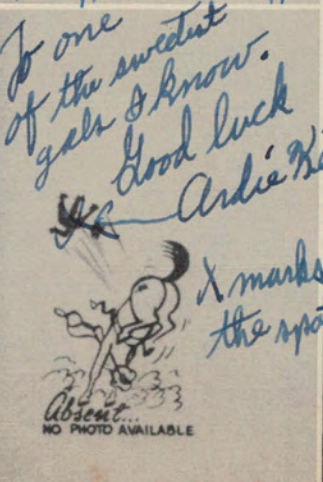 To one
of the sweetest
gals I know.
Good luck
Ardie
X marks
the
Absent...
NO PHOTO AVAILABLE